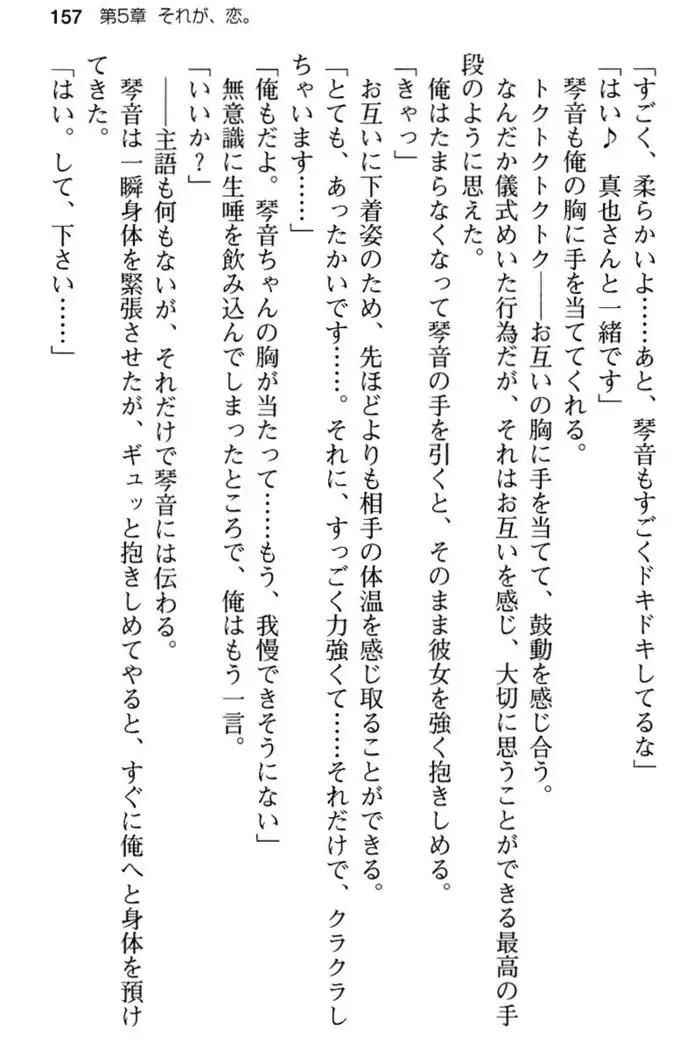 157 第5章 それが、恋。
「すごく、柔らかいよ……あと、琴音もすごくドキドキしてるな」
「はい♪ 真也さんと一緒です」
琴音も俺の胸に手を当ててくれる。
トクトクトクトク――お互いの胸に手を当てて、鼓動を感じ合う。
なんだか儀式めいた行為だが、それはお互いを感じ、大切に思うことができる最高の手
段のように思えた。
俺はたまらなくなって琴音の手を引くと、そのまま彼女を強く抱きしめる。
「きゃっ」
お互いに下着姿のため、先ほどよりも相手の体温を感じ取ることができる。
「とても、あったかいです……。それに、すっごく力強くて……それだけで、クラクラし
ちゃいます……」
「俺もだよ。琴音ちゃんの胸が当たって……もう、我慢できそうにない」
無意識に生唾を飲み込んでしまったところで、俺はもう一言。
「いいか？」
――主語も何もないが、それだけで琴音には伝わる。
琴音は一瞬身体を緊張させたが、ギュッと抱きしめてやると、すぐに俺へと身体を預け
てきた。
「はい。して、下さい……」